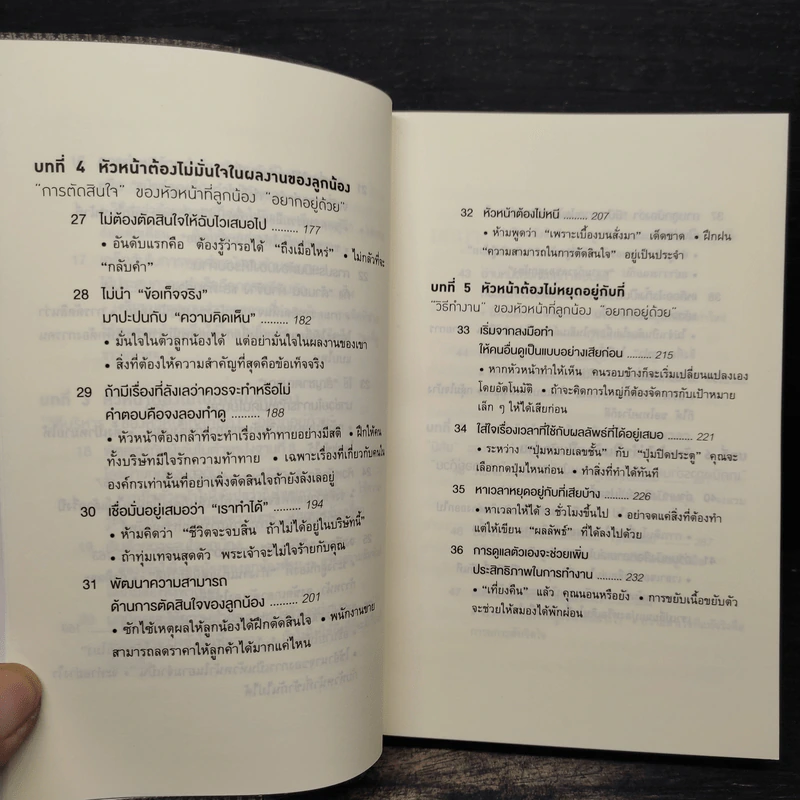 บทที่ 4 หัวหน้าต้องไม่มั่นใจในผลงานของลูกน้อง
"การตัดสินใจ" ของหัวหน้าที่ลูกน้อง "อยากอยู่ด้วย"
27 ไม่ต้องตัดสินใจให้ฉับไวเสมอไป ......... 177
• อันดับแรกคือ ต้องรู้ว่ารอได้ "ถึงเมื่อไหร่" • ไม่กลัวที่จะ
"กลับคำ"
28 ไม่นำ "ข้อเท็จจริง"
มาปะปนกับ "ความคิดเห็น" ......... 182
• มั่นใจในตัวลูกน้องได้ แต่อย่ามั่นใจในผลงานของเขา
• สิ่งที่ต้องให้ความสำคัญที่สุดคือข้อเท็จจริง
29 ถ้ามีเรื่องที่ลังเลว่าควรจะทำหรือไม่
คำตอบคือจงลองทำดู ......... 188
• หัวหน้าต้องกล้าที่จะทำเรื่องท้าทายอย่างมีสติ • ฝึกให้คน
ทั้งบริษัทมีใจรักความท้าทาย • เฉพาะเรื่องที่เกี่ยวกับคนใน
องค์กรเท่านั้นที่อย่าเพิ่งตัดสินใจถ้ายังลังเลอยู่
30 เชื่อมั่นอยู่เสมอว่า "เราทำได้" ......... 194
• ห้ามคิดว่า "ชีวิตจะจบสิ้น ถ้าไม่ได้อยู่ในบริษัทนี้"
• ถ้าทุ่มเทจนสุดตัว พระเจ้าจะไม่ใจร้ายกับคุณ
31 พัฒนาความสามารถ
ด้านการตัดสินใจของลูกน้อง ......... 201
• ซักไซ้เหตุผลให้ลูกน้องได้ฝึกตัดสินใจ • พนักงานขาย
สามารถลดราคาให้ลูกค้าได้มากแค่ไหน
32 หัวหน้าต้องไม่หนี ......... 207
• ห้ามพูดว่า "เพราะเบื้องบนสั่งมา" เด็ดขาด • ฝึกฝน
"ความสามารถในการตัดสินใจ" อยู่เป็นประจำ
บทที่ 5 หัวหน้าต้องไม่หยุดอยู่กับที่
"วิธีทำงาน" ของหัวหน้าที่ลูกน้อง "อยากอยู่ด้วย"
33 เริ่มจากลงมือทำ
ให้คนอื่นดูเป็นแบบอย่างเสียก่อน ......... 215
• หากหัวหน้าทำให้เห็น คนรอบข้างก็จะเริ่มเปลี่ยนแปลงเอง
โดยอัตโนมัติ • ถ้าจะคิดการใหญ่ก็ต้องจัดการกับเป้าหมาย
เล็ก ๆ ให้ได้เสียก่อน
34 ใส่ใจเรื่องเวลาที่ใช้กับผลลัพธ์ที่ได้อยู่เสมอ ......... 221
• ระหว่าง "ปุ่มหมายเลขชั้น" กับ "ปุ่มปิดประตู" คุณจะ
เลือกกดปุ่มไหนก่อน • ทำสิ่งที่ทำได้ทันที
35 หาเวลาหยุดอยู่กับที่เสียบ้าง ......... 226
• หาเวลาให้ได้ 3 ชั่วโมงขึ้นไป • อย่าจดแค่สิ่งที่ต้องทำ
แต่ให้เขียน "ผลลัพธ์" ที่ได้ลงไปด้วย
36 การดูแลตัวเองจะช่วยเพิ่ม
ประสิทธิภาพในการทำงาน ......... 232
• "เที่ยงคืน" แล้ว คุณนอนหรือยัง • การขยับเนื้อขยับตัว
จะช่วยให้สมองได้พักผ่อน